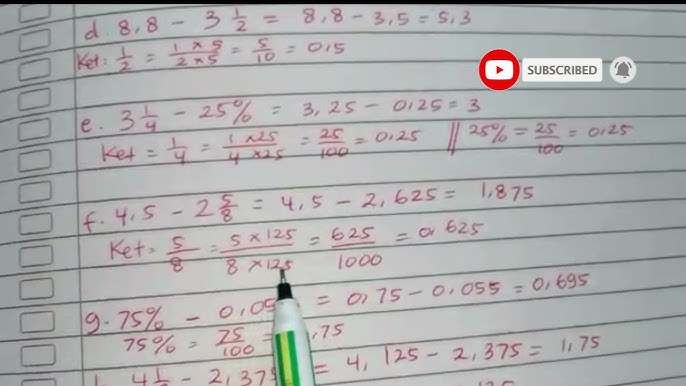 d. 8,8 - 3 1/2 = 8,8 - 3,5 = 5,3
Ket: 1/2 = 1 × 5 / 2 × 5 = 5/10 = 0,5
SUBSCRIBED
e. 3 1/4 - 25% = 3,25 - 0,25 = 3
Ket = 1/4 = 1 × 25 / 4 × 25 = 25/100 = 0,25 || 25% = 25/100 = 0,25
f. 4,5 - 2 5/8 = 4,5 - 2,625 = 1,875
Ket = 5/8 = 5 × 125 / 8 × 125 = 625/1000 = 0,625
g. 75% - 0,05 = 0,75 - 0,055 = 0,695
75% = 75/100 = ,75
4 - 2,375 = 4,125 - 2,375 = 1,75